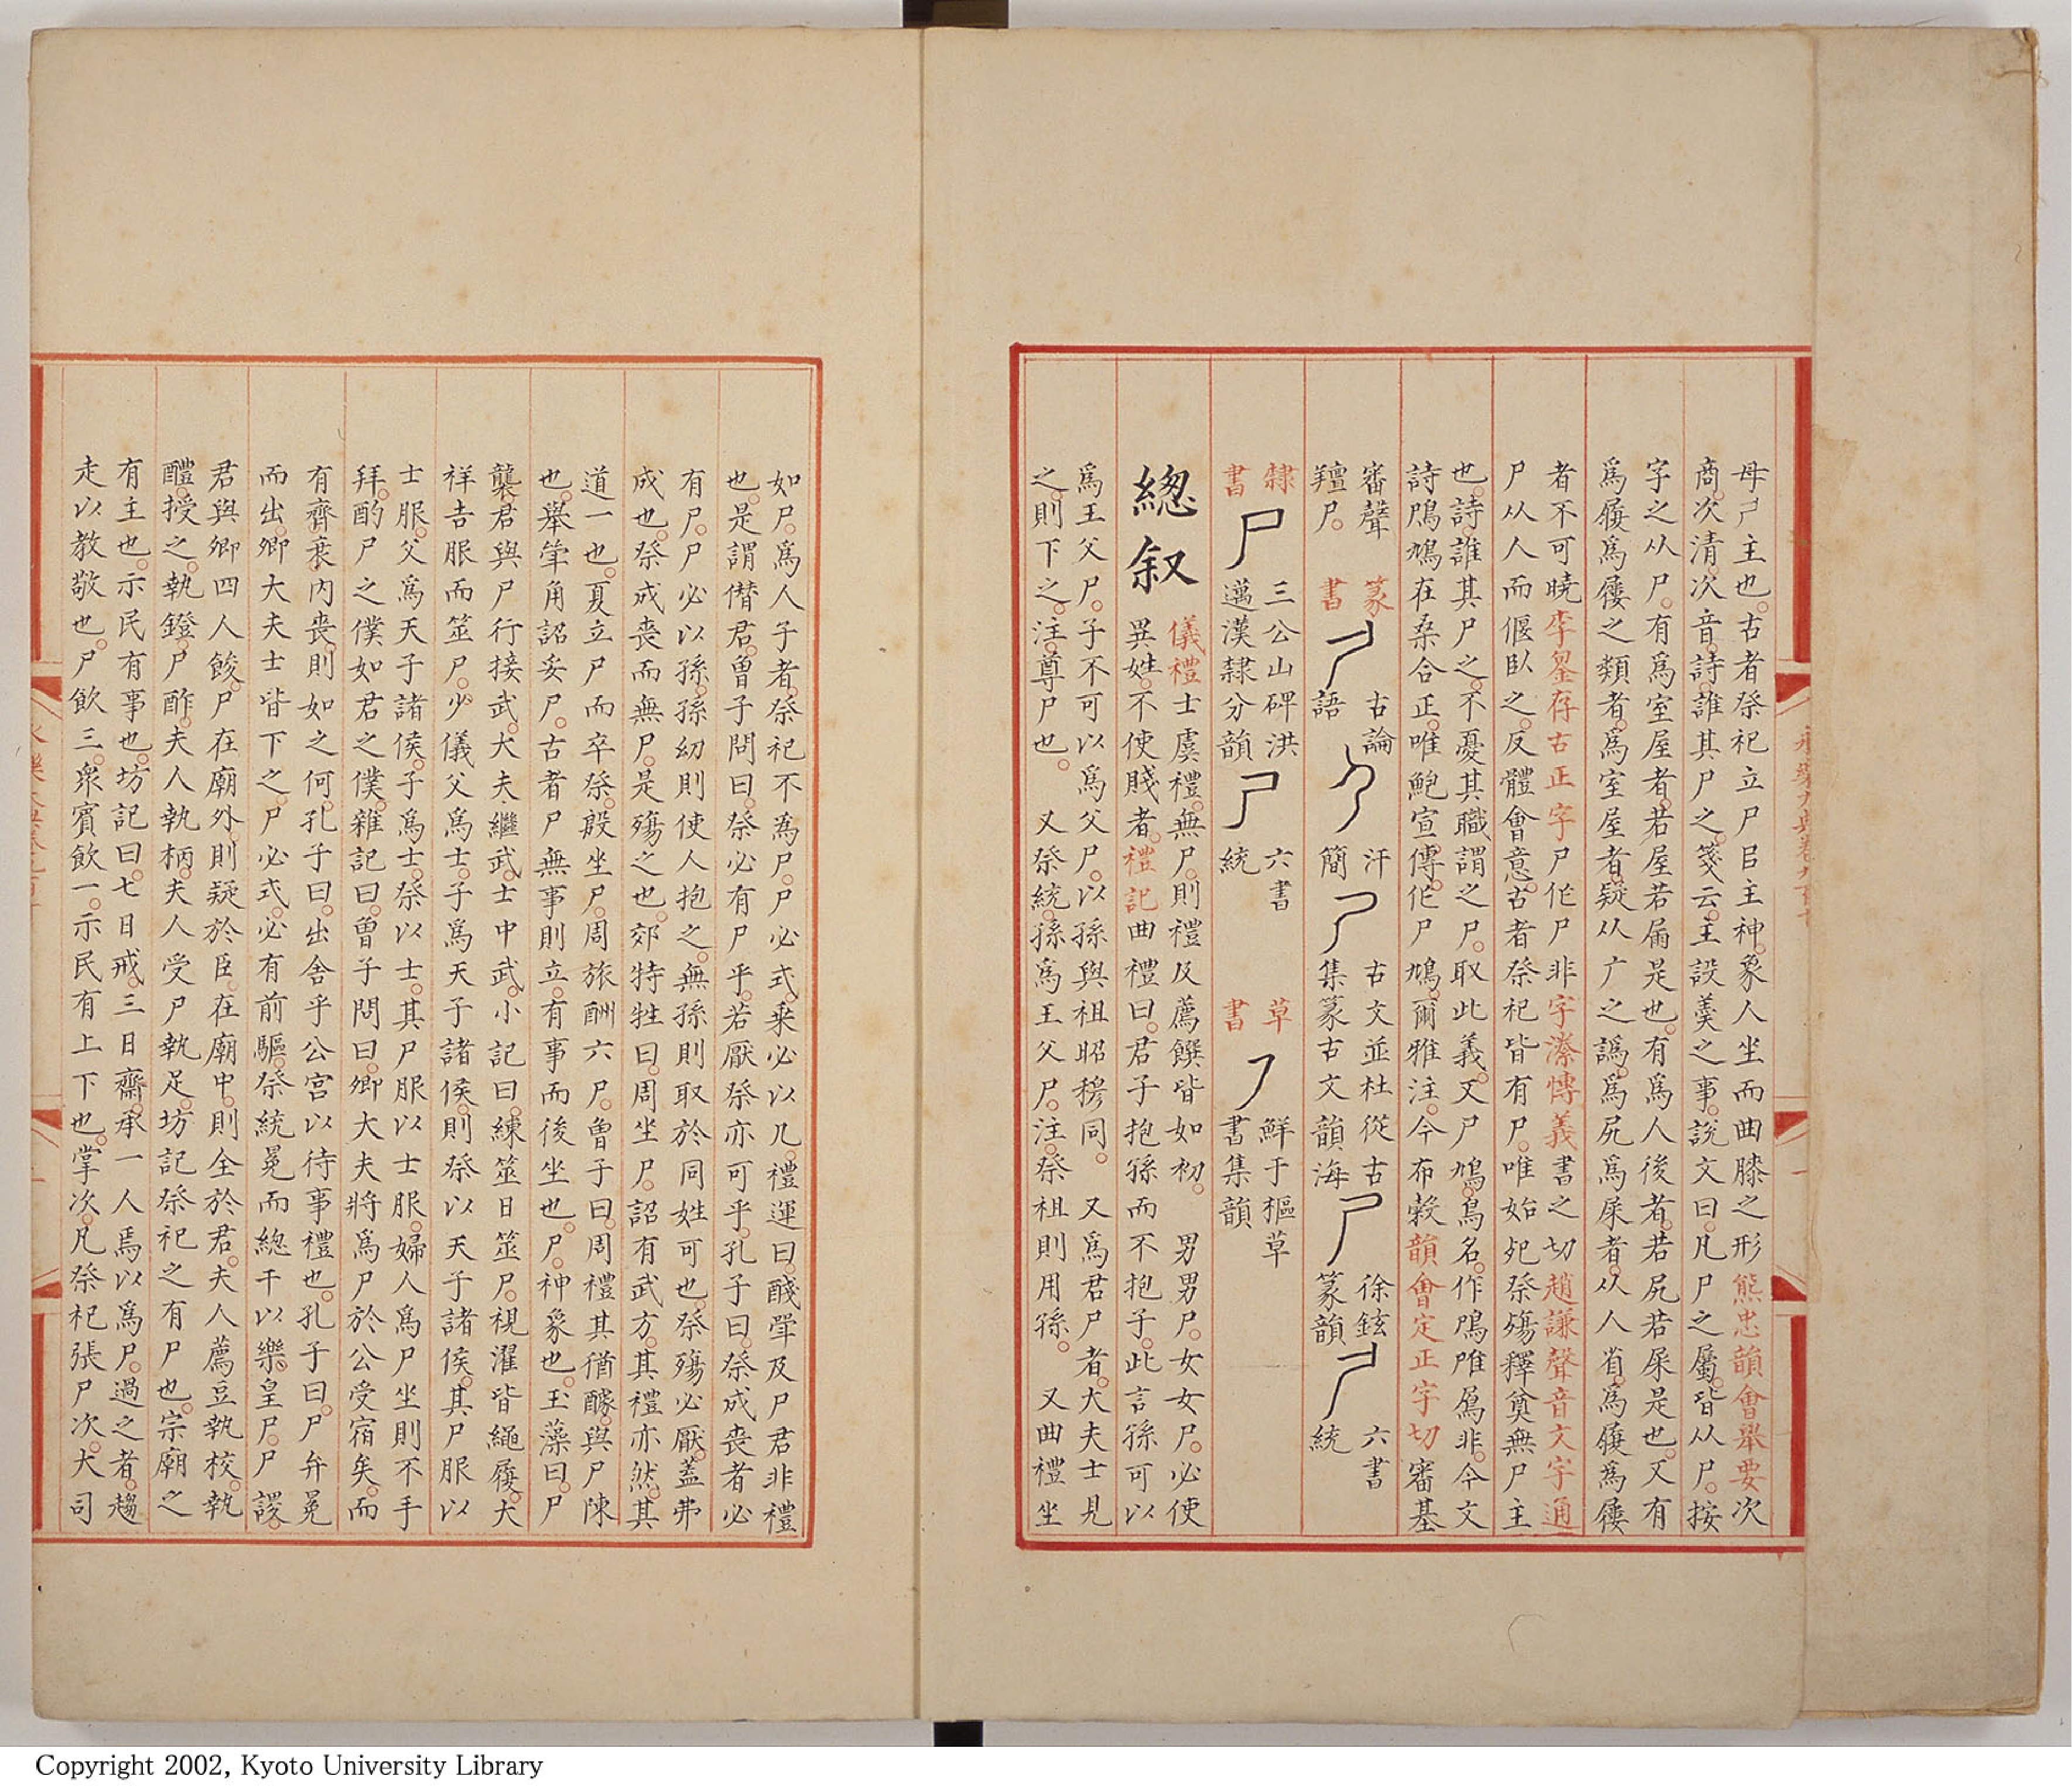 母𡰣主也。古者祭祀立尸㠯主神。象人坐而曲膝之形熊忠韻會舉要次
商。次清。次音。詩誰其尸之。箋云。主設羹之事。說文曰。凡尸之屬皆从尸。按
字之从尸。有爲室屋者。若屋若屚是也。有爲人後者。若尻若㞙是也。又有
爲履爲屨之類者。爲室屋者。疑从广之譌。爲尻爲㞙者。从人省。爲履爲屨
者不可曉李銎存古正字尸作尸非字潫愽義書之切趙謙聲音文字通
尸从人而偃臥之。反體會意。古者祭祀皆有尸。唯始死祭殤釋奠無尸主
也。詩誰其尸之。不憂其職謂之尸。取此義。又尸鳩。鳥名。作鳲鳲非。今文
詩鳲鳩在桑合正。唯鮑宣傳。作尸鳩。爾雅注。今布穀韻會定正字切審基
審聲
羶尸。
篆書
古論語
汗簡
古文並杜從古集篆古文韻海
徐鉉篆韻
六書統
隸書
尸
三公山碑洪邁漢隸分韻
尸
六書統
草書
鮮于樞草書集韻
緫叙
儀禮士虞禮。無尸。則禮及薦饌皆如初。 男男尸。女女尸。必使
異姓。不使賤者。禮記曲禮曰。君子抱孫而不抱子。此言孫可以
爲王父尸。子不可以爲父尸。以孫與祖昭穆同。 又爲君尸者。大夫士見
之。則下之。注。尊尸也。 又祭統。孫爲王父尸。注。祭祖則用孫。 又曲禮坐
如尸。爲人子者。祭祀不爲尸。尸必式。乘必以几。禮運曰。醆斝及尸君非禮
也。是謂僭君。曾子問曰。祭必有尸乎。若厭祭亦可乎。孔子曰。祭成喪者必
有尸。尸必以孫。孫幼則使人抱之。無孫則取於同姓可也。祭殤必厭。蓋弗
成也。祭成喪而無尸。是殤之也。郊特牲曰。周坐尸。詔有武方。其禮亦然。其
道一也。夏立尸而卒祭。殷坐尸。周旅酬六尸。曾子曰。周禮其猶醵。與尸陳
也。舉斝角詔妥尸。古者尸無事則立。有事而後坐也。尸。神象也。玉藻曰。尸
襲。君與尸行接武。大夫繼武。士中武。小記曰。練筮日筮尸。視濯皆繩屨。大
祥吉服而筮尸。少儀父爲士。子爲天子諸侯。則祭以天子諸侯。其尸服以
士服。父爲天子諸侯。子爲士。祭以士。其尸服以士服。婦人爲尸坐則不手
拜。酌尸之僕如君之僕。雜記曰。曾子問曰。卿大夫將爲尸於公受宿矣。而
有齊衰內喪。則如之何。孔子曰。出舍乎公宮以待事禮也。孔子曰。尸弁冕
而出。卿大夫士皆下之。尸必式。必有前驅。祭統冕而緫干以樂皇尸。尸謖。
君與卿四人餕。尸在廟外。則疑於臣。在廟中。則全於君。夫人薦豆執校。執
醴。授之。執鐙。尸酢夫人執柄。夫人受尸執足。坊記祭祀之有尸也。宗廟之
有主也。示民有事也。坊記曰。七日戒。三日齋。承一人焉以爲尸。過之者。趨
走以教敬也。尸飲三。衆賓飲一。示民有上下也。掌次。凡祭祀張尸次。大司
Copyright 2002, Kyoto University Library